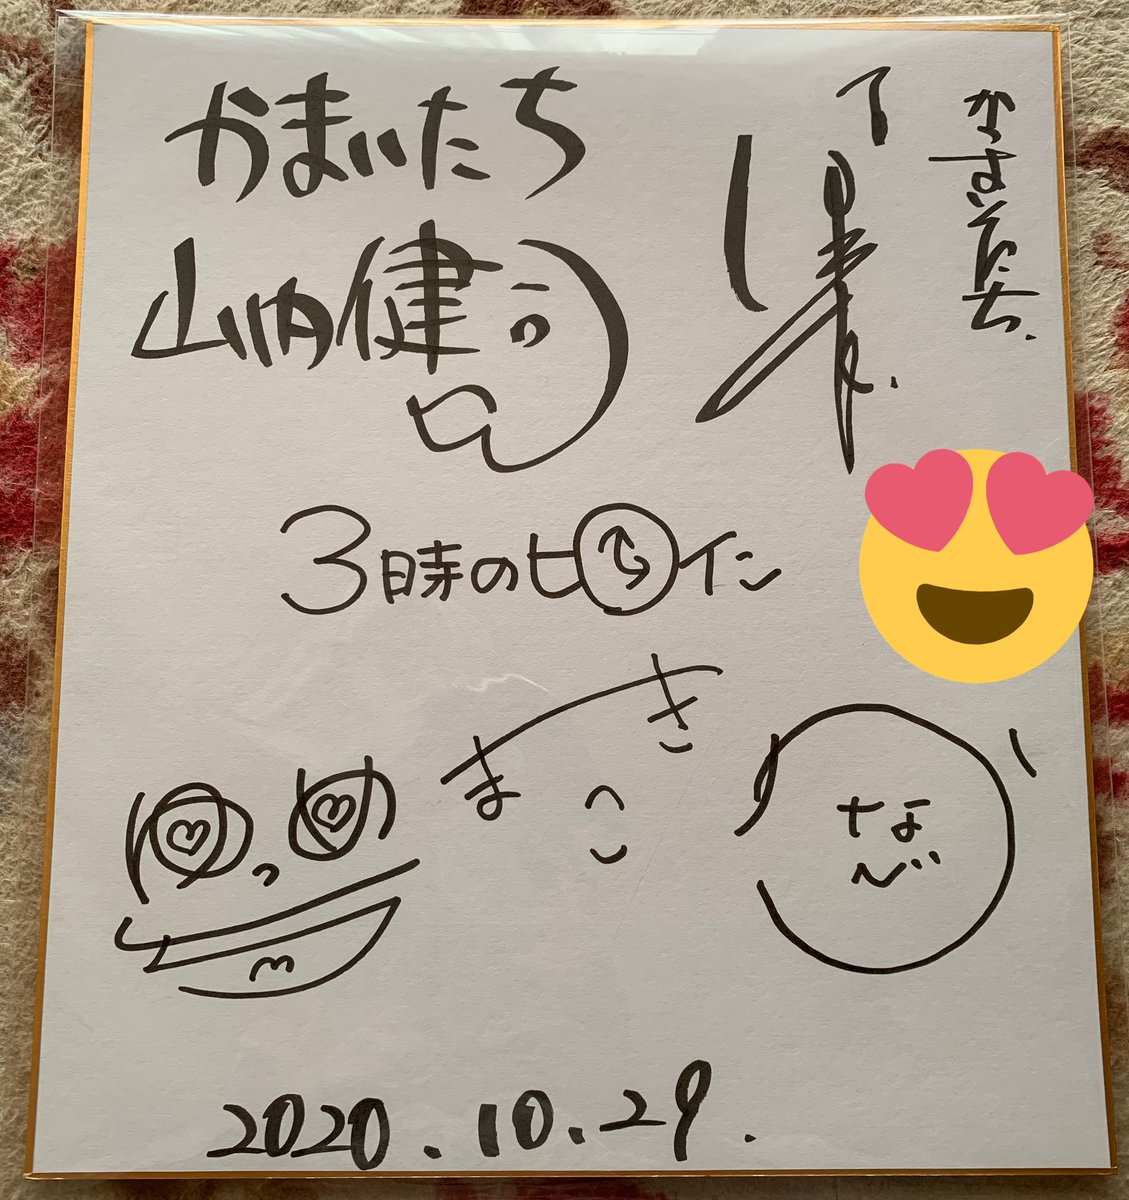 かまいたち
山内健司
かまいたち.
3時のヒロイン
ゆっめ
まき
なべ
2020.10.29.